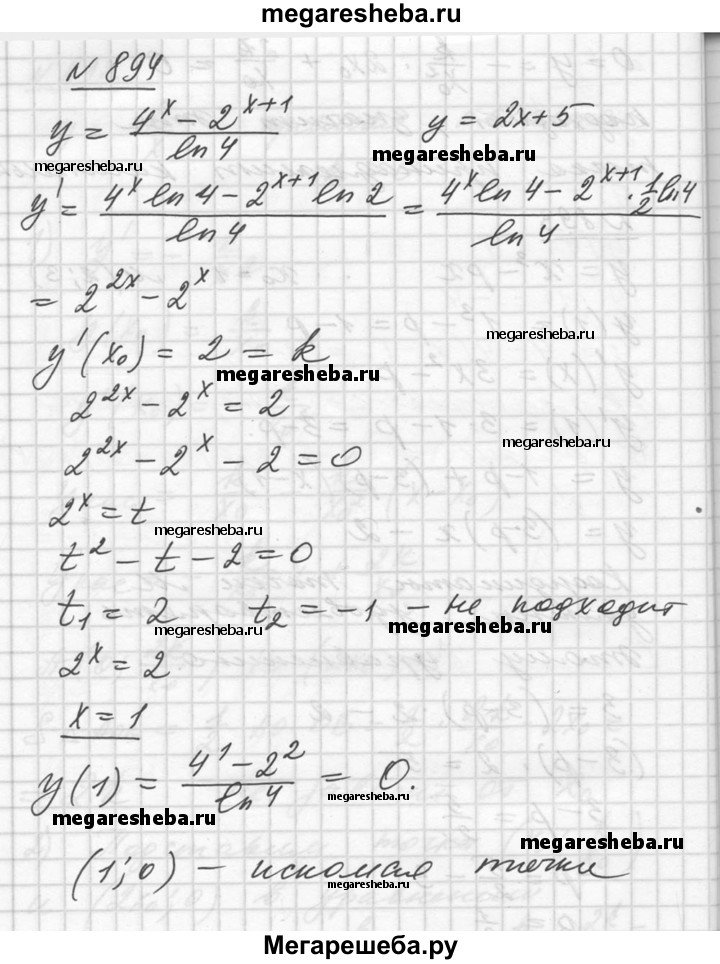 megaresheba.ru
N 894
y = (4^x − 2^(x+1)) / ln 4 y = 2x+5
megaresheba.ru megaresheba.ru
y' = (4^x ln 4 − 2^(x+1) ln 2) / ln 4 = (4^x ln 4 − 2^(x+1) · 1/2 ln 4) / ln 4
= 2^(2x) − 2^x
megaresheba.ru
y'(x₀) = 2 = k
megaresheba.ru
2^(2x) − 2^x = 2
megaresheba.ru
2^(2x) − 2^x − 2 = 0
2^x = t
megaresheba.ru
t² − t − 2 = 0
t₁ = 2 t₂ = −1 − не подходит
megaresheba.ru megaresheba.ru
2^x = 2
x = 1
y(1) = (4^1 − 2^2) / ln 4 = 0.
megaresheba.ru megaresheba.ru
megaresheba.ru
(1; 0) − искомая точка
megaresheba.ru
Мегарешеба.ру